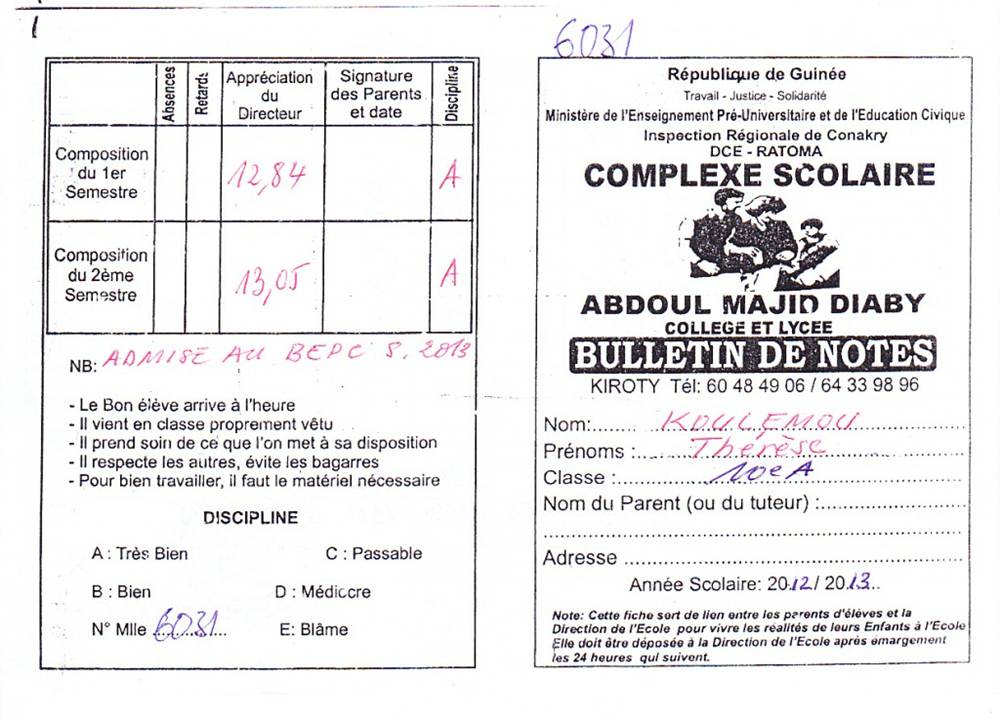 6031
Absences
Retards
Appréciation du Directeur
Signature des Parents et date
Discipline
Composition du 1er Semestre
12,84
A
Composition du 2ème Semestre
13,05
A
NB: ADMISE AU BEPC S. 2013
- Le Bon élève arrive à l'heure
- Il vient en classe proprement vêtu
- Il prend soin de ce que l'on met à sa disposition
- Il respecte les autres, évite les bagarres
- Pour bien travailler, il faut le matériel nécessaire
DISCIPLINE
A : Très Bien C : Passable
B : Bien D : Médiocre
N° Mlle 6031 E: Blâme
République de Guinée
Travail - Justice - Solidarité
Ministère de l'Enseignement Pré-Universitaire et de l'Education Civique
Inspection Régionale de Conakry
DCE - RATOMA
COMPLEXE SCOLAIRE
ABDOUL MAJID DIABY
COLLEGE ET LYCEE
BULLETIN DE NOTES
KIROTY Tél: 60 48 49 06 / 64 33 98 96
Nom: KOULEMOU
Prénoms : Thérèse
Classe : 10e A
Nom du Parent (ou du tuteur) :
Adresse
Année Scolaire: 2012 / 2013
Note: Cette fiche sert de lien entre les parents d'élèves et la
Direction de l'Ecole pour vivre les réalités de leurs Enfants à l'Ecole
Elle doit être déposée à la Direction de l'Ecole après émargement
les 24 heures qui suivent.